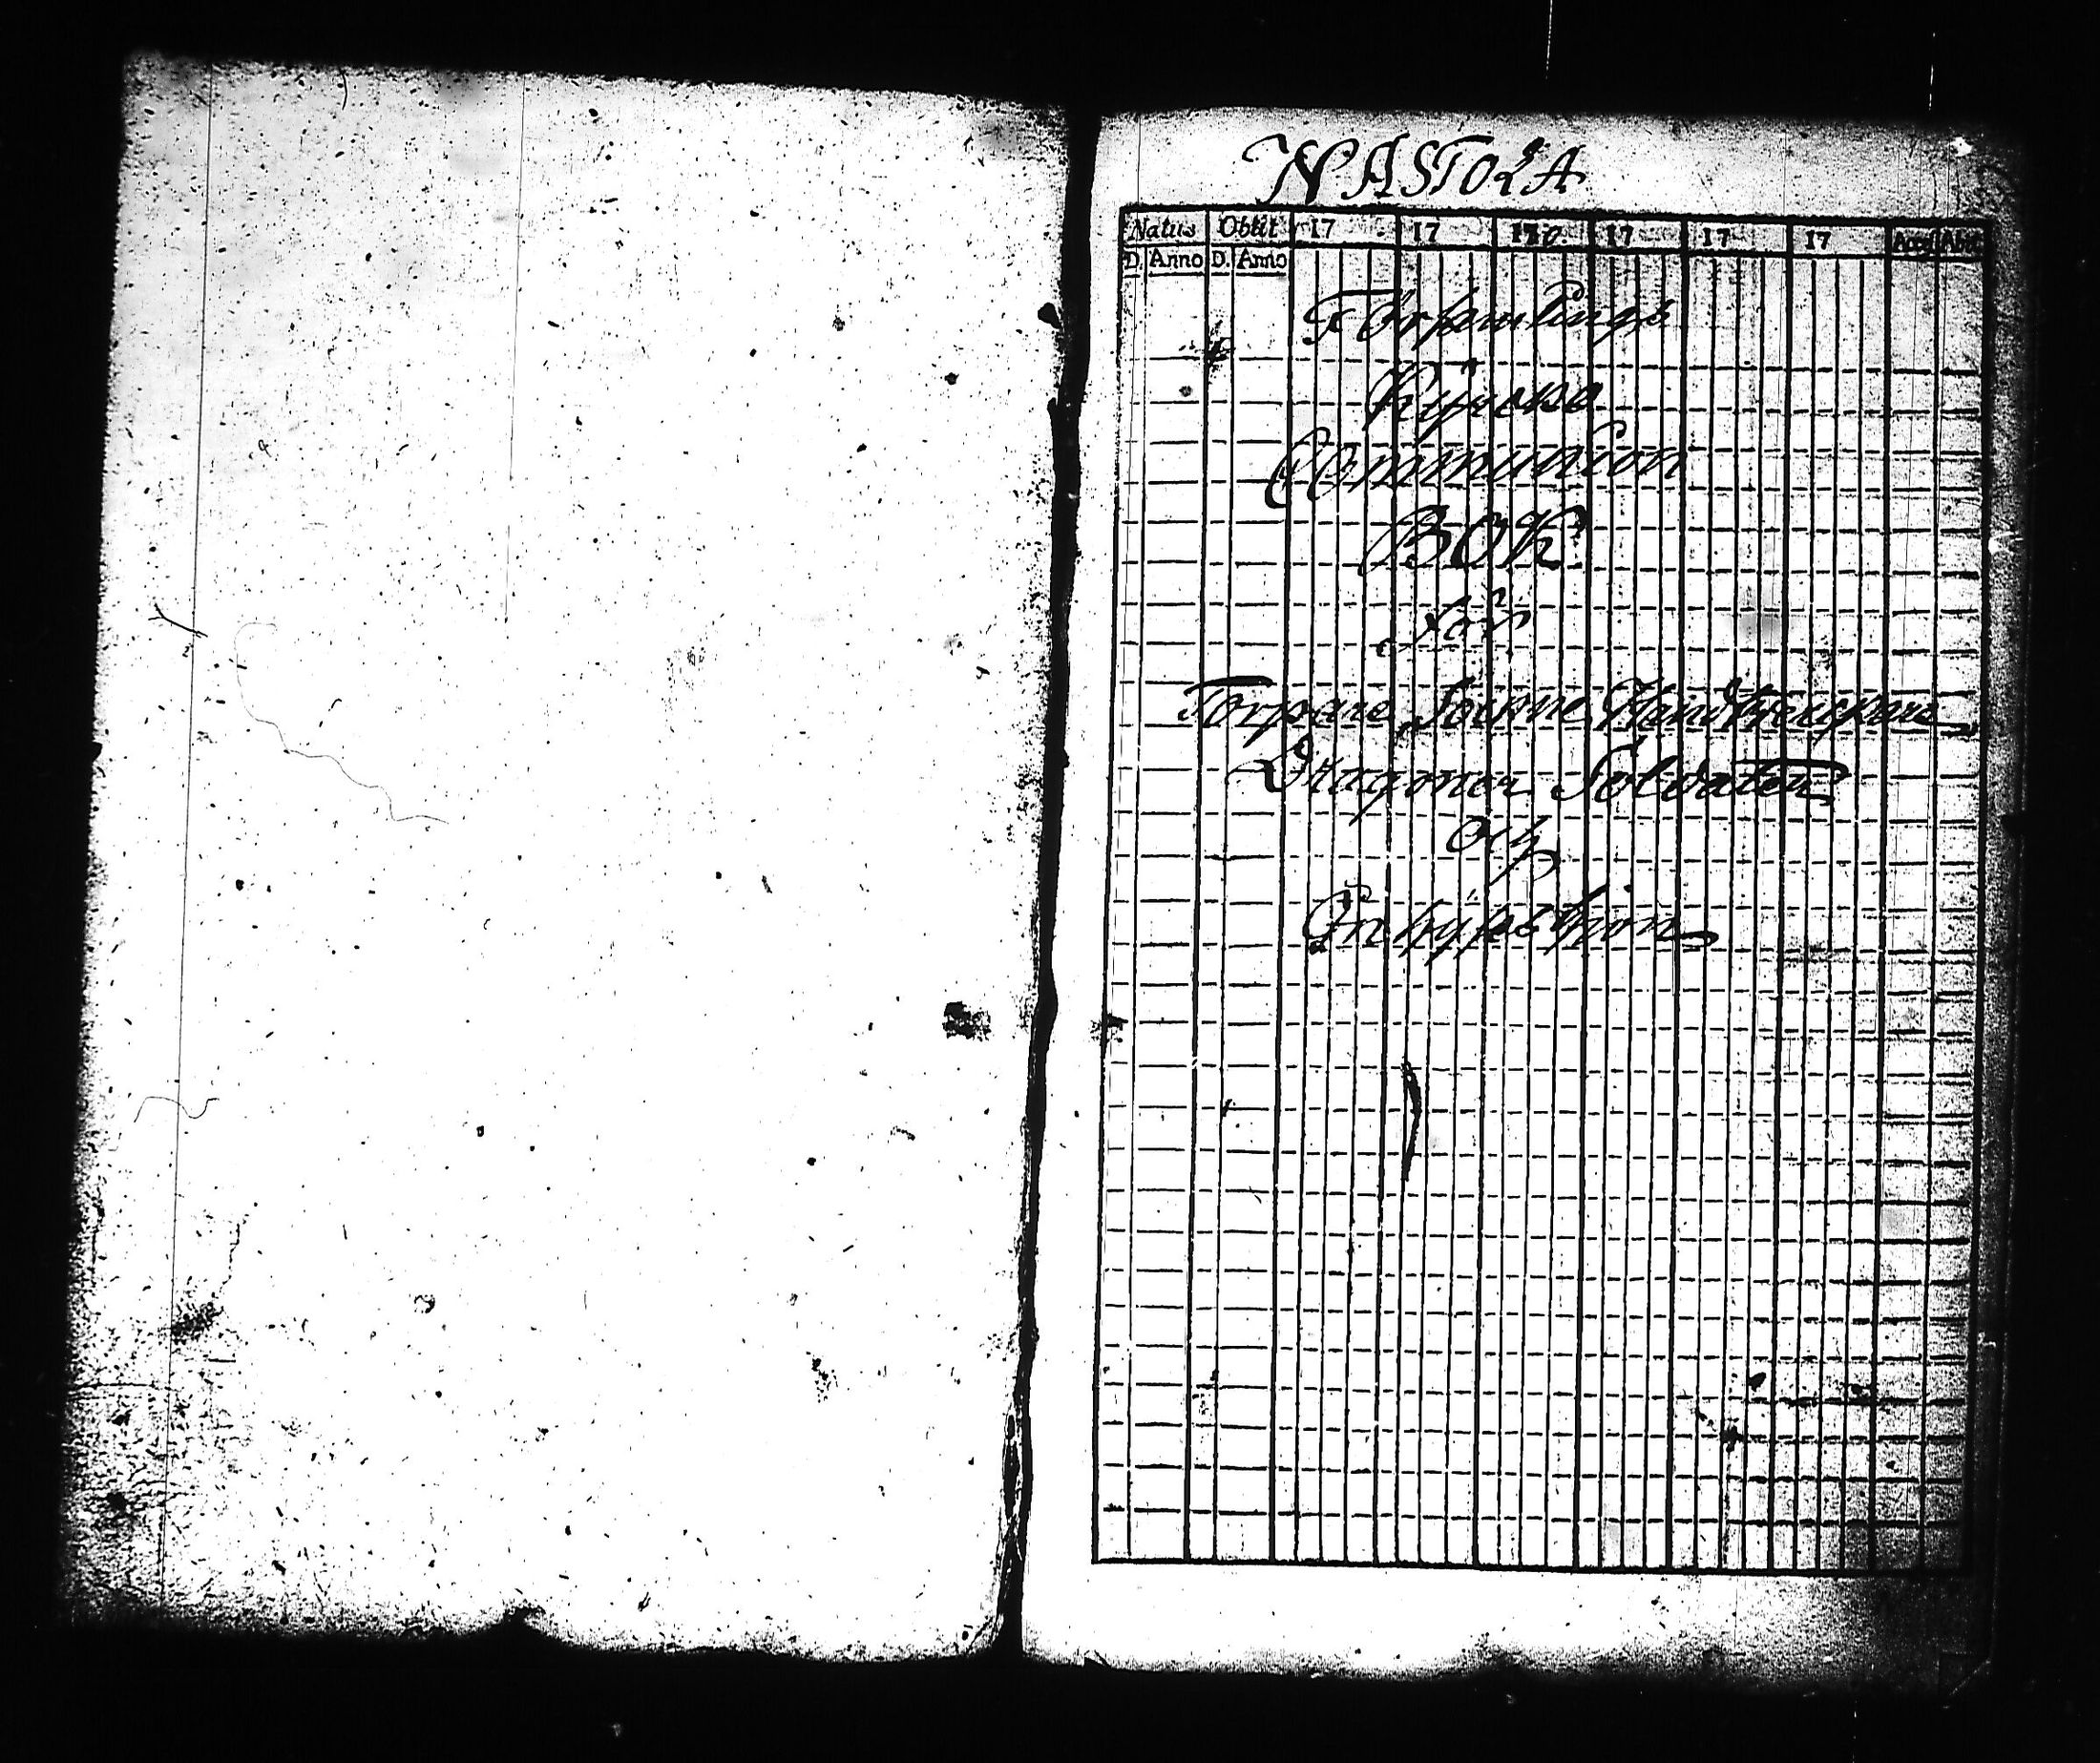 NASTOLA
Natus Obiit 17 17 17 17 17 17 Acces Abit
D. Anno D. Anno
Församlings
Kyrckio
Communion
BOK
för
Torpare Sockne Handtwerckare
Dragoner Soldater
och
Inhyses hion